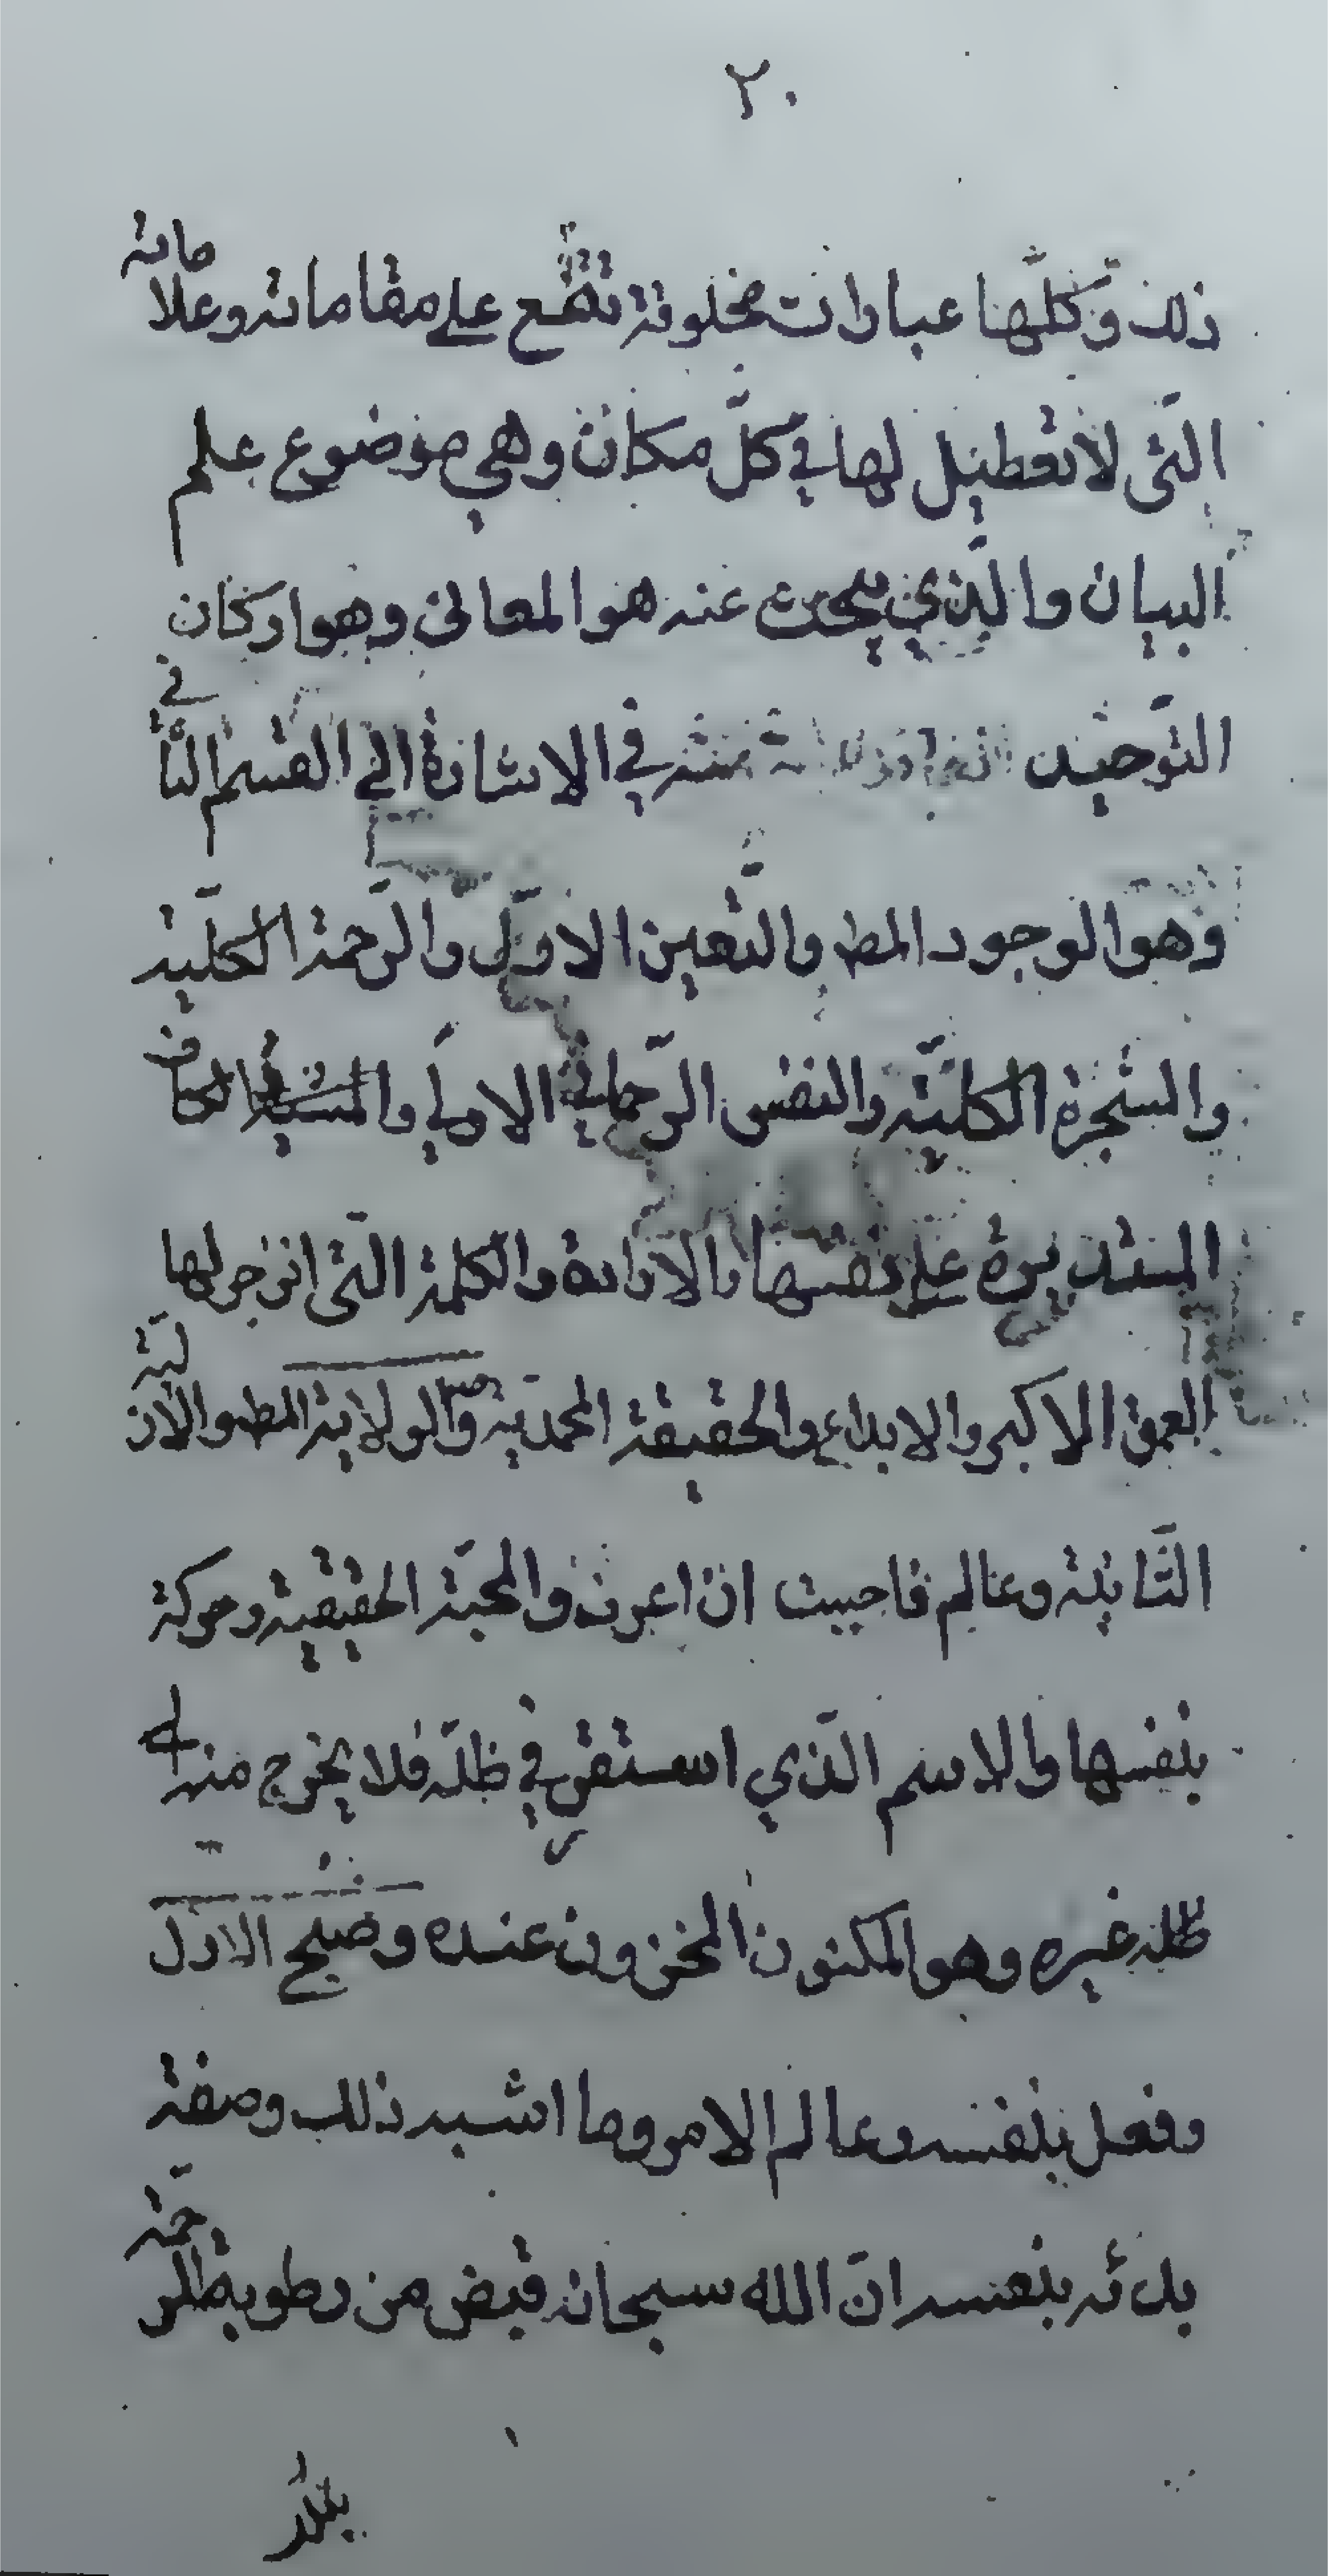 ٢٠
ذلك وكلّها عبارات مخلوقة تقع على مقاماته وعلاماته
التّى لا تعطيل لها في كلّ مكان وهي موضوع علم
البيان والّذي يبحث عنه هو المعانى وهو اركان
التّوحيد في الاشارة الى القسم الثّانى
وهو الوجود المط والتّعين الاوّل والرّحمة الكليّة
والشّجرة الكليّة والنفس الرّحمانية الاولى والمشيّة والكاف
المستديرة على نفسها والارادة والكلمة التّى انزجر لها
العمق الاكبر والابداع والحقيقة المحمديّة ص والولاية المط والازليّة
الثّانية وعالم فاحببت ان اعرف والمحبّة الحقيقية وحركة
بنفسها والاسم الّذي استقر في ظلّه فلا يخرج منه الى
غيره وهو المكنون المخزون عنده وصبح الازل
وفعل بنفسه وعالم الامر وما اشبه ذلك وصفة
بدئه بنفسه انّ الله سبحانه قبض من رطوبة الرّحمة